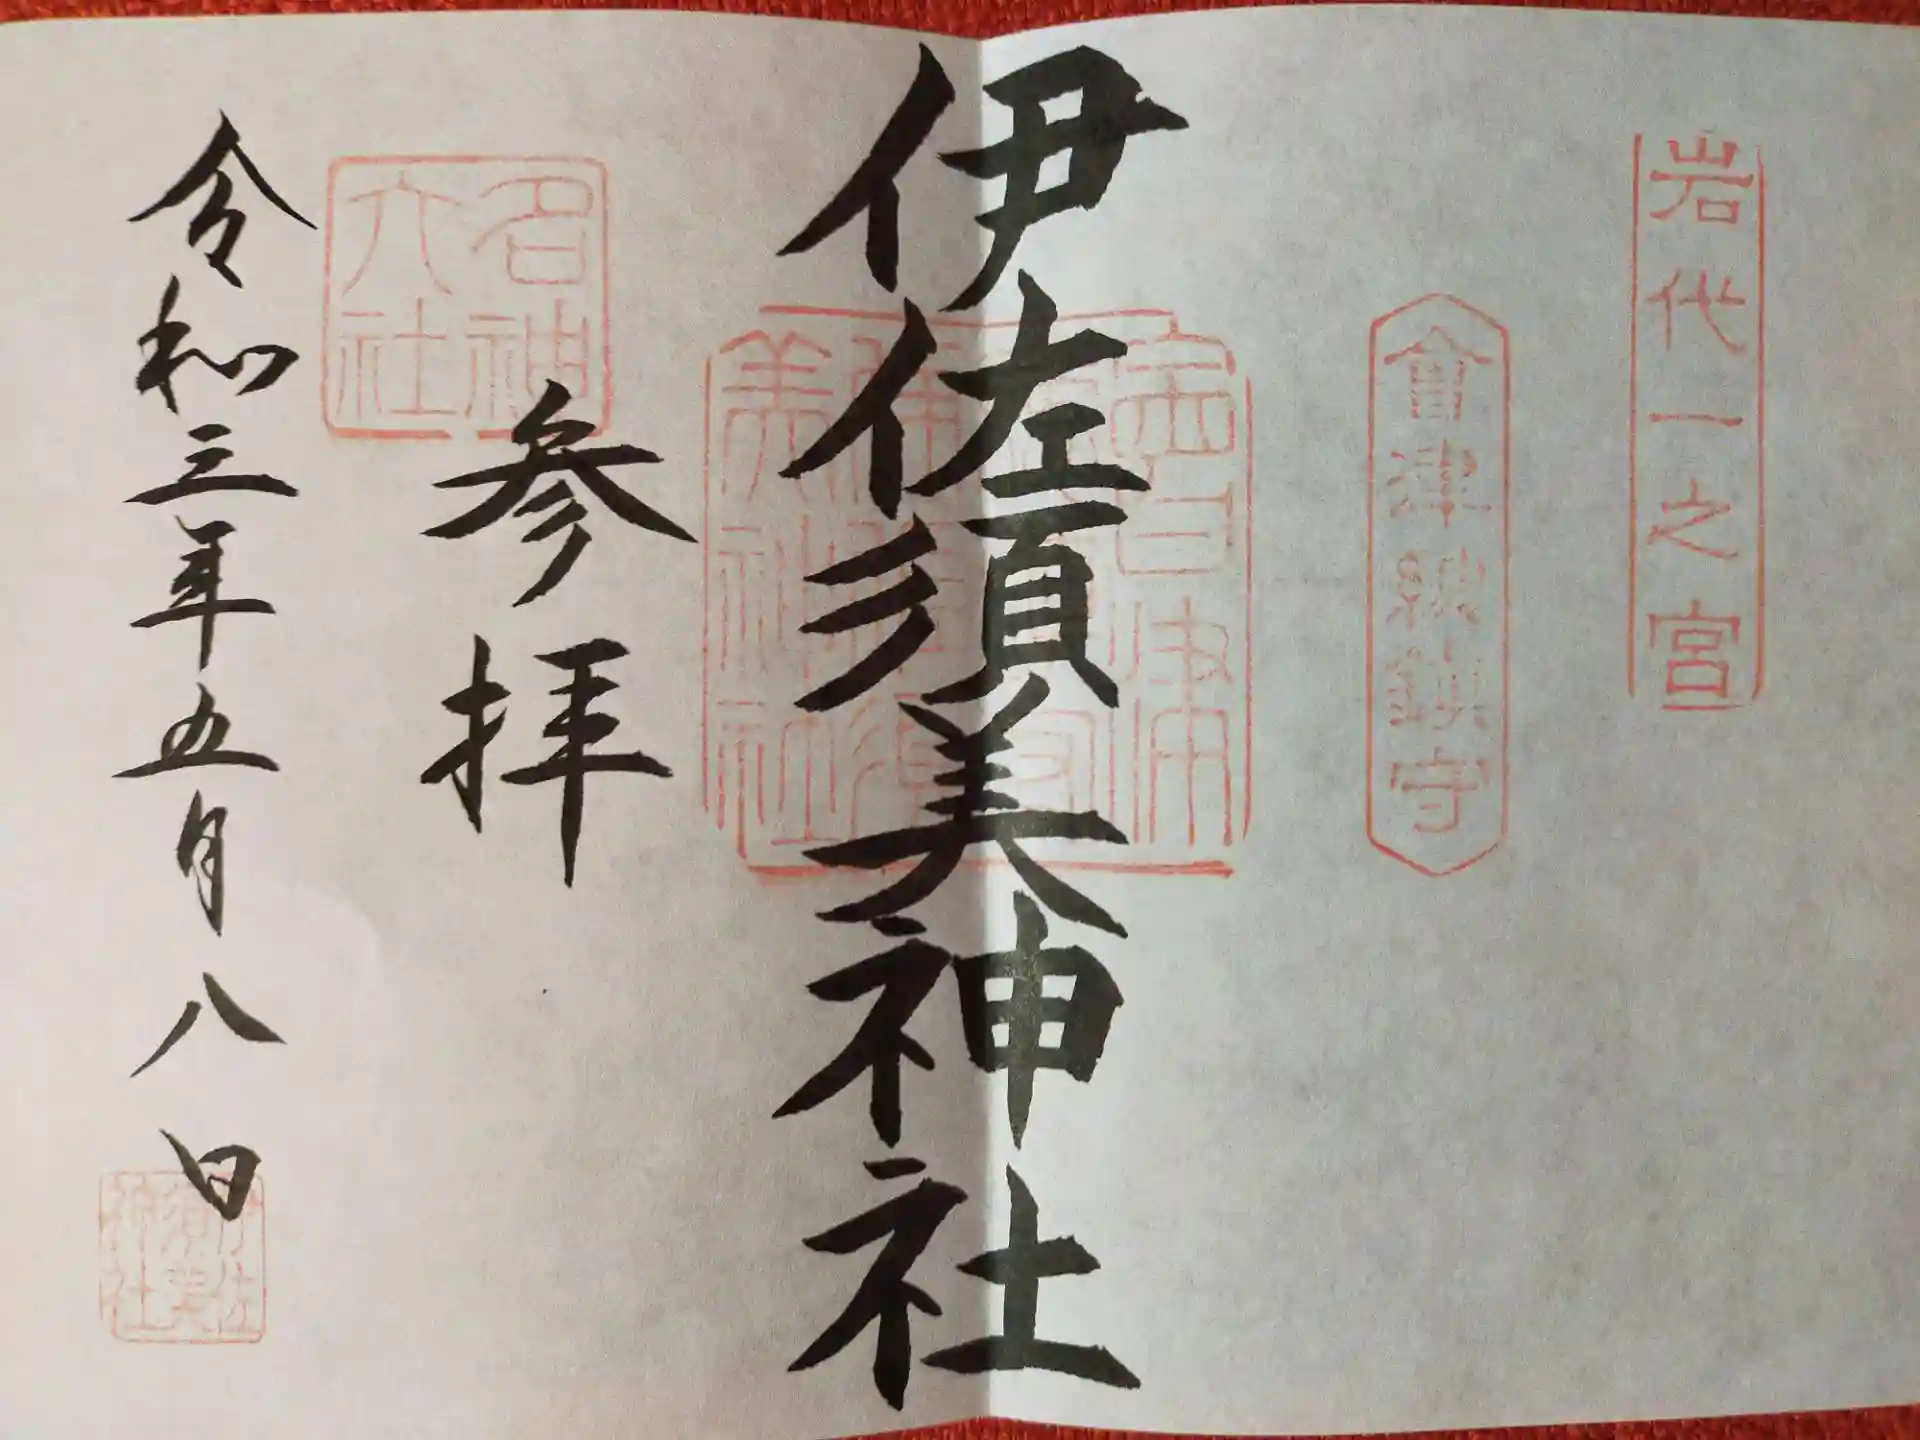 岩代一之宮
會津総鎮守
伊佐須美神社
参拝
名神
大社
令和三年五月八日
伊佐
須美
神社